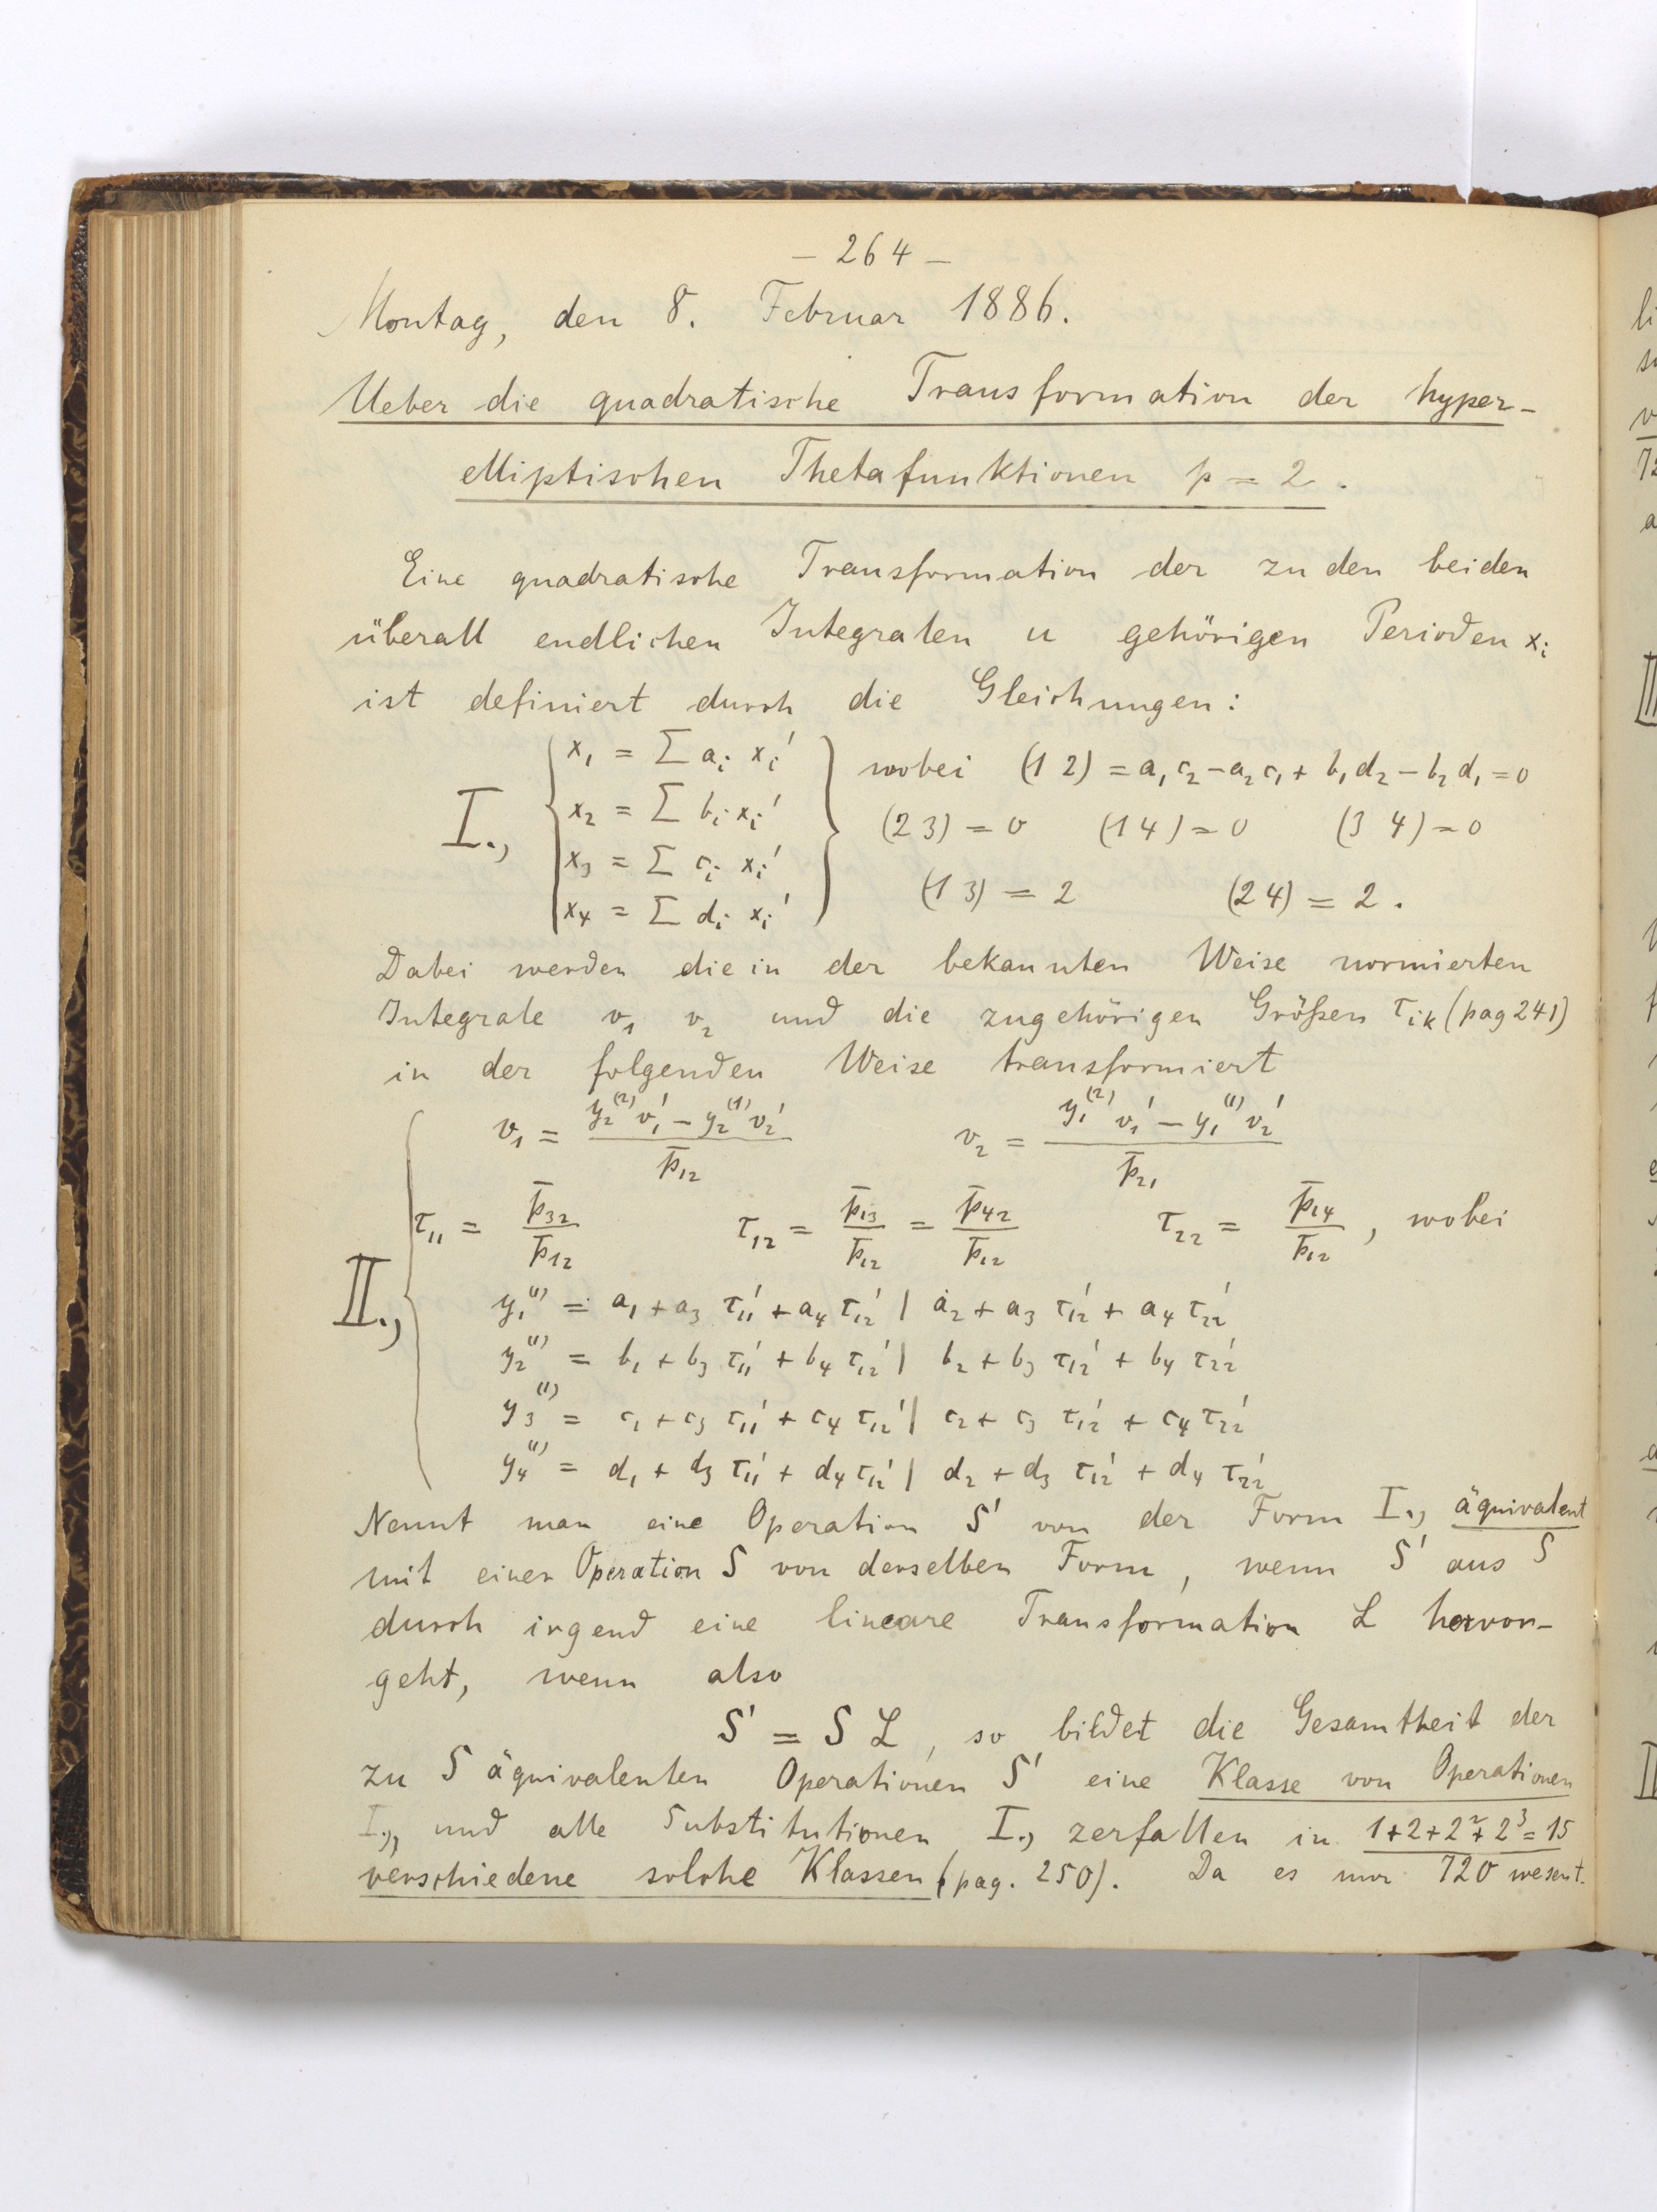 – 264 –
Montag, den 8. Februar 1886.
Ueber die quadratische Transformation der hyper-
elliptischen Thetafunktionen p = 2.
Eine quadratische Transformation der zu den beiden
überall endlichen Integralen u gehörigen Perioden xᵢ
ist definiert durch die Gleichungen:
x₁ = Σ aᵢ xᵢ′ wobei (1 2) = a₁c₂ – a₂c₁ + b₁d₂ – b₂d₁ = 0
I., x₂ = Σ bᵢ xᵢ′ (2 3) = 0 (1 4) = 0 (3 4) = 0
x₃ = Σ cᵢ xᵢ′
x₄ = Σ dᵢ xᵢ′ (1 3) = 2 (2 4) = 2.
Dabei werden die in der bekannten Weise normierten
Integrale v₁ v₂ und die zugehörigen Größen τᵢₖ (pag 241)
in der folgenden Weise transformiert
v₁ = (y₂⁽²⁾v₁′ – y₂⁽¹⁾v₂′) / p̄₁₂ v₂ = (y₁⁽²⁾v₁′ – y₁⁽¹⁾v₂′) / p̄₂₁
τ₁₁ = p̄₃₂ / p̄₁₂ τ₁₂ = p̄₁₃ / p̄₁₂ = p̄₄₂ / p̄₁₂ τ₂₂ = p̄₁₄ / p̄₁₂, wobei
II., y₁⁽¹⁾ = a₁ + a₃ τ₁₁′ + a₄ τ₁₂′ | a₂ + a₃ τ₁₂′ + a₄ τ₂₂′
y₂⁽¹⁾ = b₁ + b₃ τ₁₁′ + b₄ τ₁₂′ | b₂ + b₃ τ₁₂′ + b₄ τ₂₂′
y₃⁽¹⁾ = c₁ + c₃ τ₁₁′ + c₄ τ₁₂′ | c₂ + c₃ τ₁₂′ + c₄ τ₂₂′
y₄⁽¹⁾ = d₁ + d₃ τ₁₁′ + d₄ τ₁₂′ | d₂ + d₃ τ₁₂′ + d₄ τ₂₂′
Nennt man eine Operation S′ von der Form I., äquivalent
mit einer Operation S von derselben Form, wenn S′ aus S
durch irgend eine lineare Transformation L hervor-
geht, wenn also
S′ = S L, so bildet die Gesamtheit der
zu S äquivalenten Operationen S′ eine Klasse von Operationen
I., und alle Substitutionen I., zerfallen in 1+2+2²+2³=15
verschiedene solche Klassen (pag. 250). Da es nur 720 wesent-